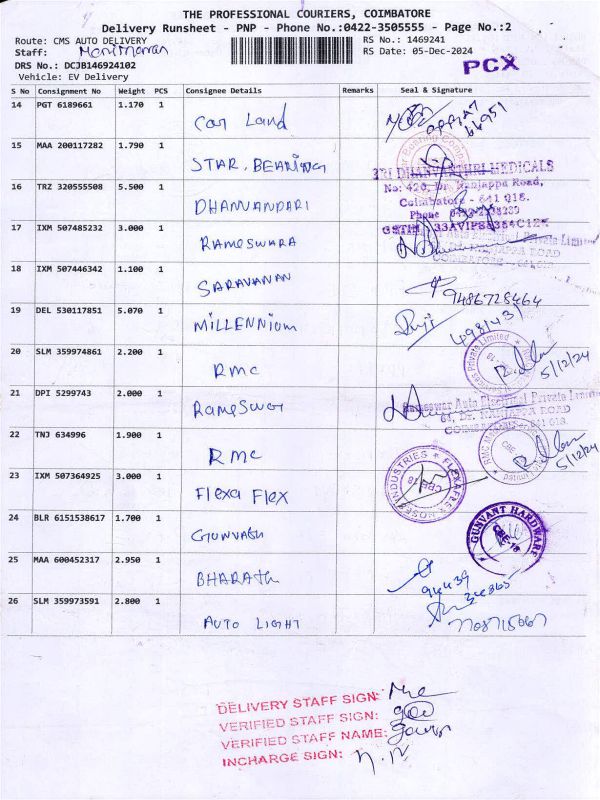 THE PROFESSIONAL COURIERS, COIMBATORE
Delivery Runsheet - PNP - Phone No.:0422-3505555 - Page No.:2
Route: CMS AUTO DELIVERY RS No.: 1469241
Staff: Manimaran RS Date: 05-Dec-2024
DRS No.: DCJB146924102 PCX
Vehicle: EV Delivery
S No Consignment No Weight PCS Consignee Details Remarks Seal & Signature
14 PGT 6189661 1.170 1 Car Land
15 MAA 200117282 1.790 1 STAR. BEARING
SRI DHANVANTHRI MEDICALS
16 TRZ 320555508 5.500 1 DHANVANDARI No: 420, Dr. Nanjappa Road,
Coimbatore - 641 018.
Phone
17 IXM 507485232 3.000 1 RAMESWARA
18 IXM 507446342 1.100 1 SARAVANAN 9486728464
19 DEL 530117851 5.070 1 MILLENNIUM
20 SLM 359974861 2.200 1 RMC 5/12/24
21 DPI 5299743 2.000 1 RAMESWAR Rameswar Auto Electrical Private Limited
NANJAPPA ROAD
22 TNJ 634996 1.900 1 RMC 5/12/24
23 IXM 507364925 3.000 1 FLEXA FLEX
24 BLR 6151538617 1.700 1 GUNVANT GUNVANT HARDWARE
25 MAA 600452317 2.950 1 BHARATH
26 SLM 359973591 2.800 1 AUTO LIGHT
DELIVERY STAFF SIGN:
VERIFIED STAFF SIGN:
VERIFIED STAFF NAME:
INCHARGE SIGN: